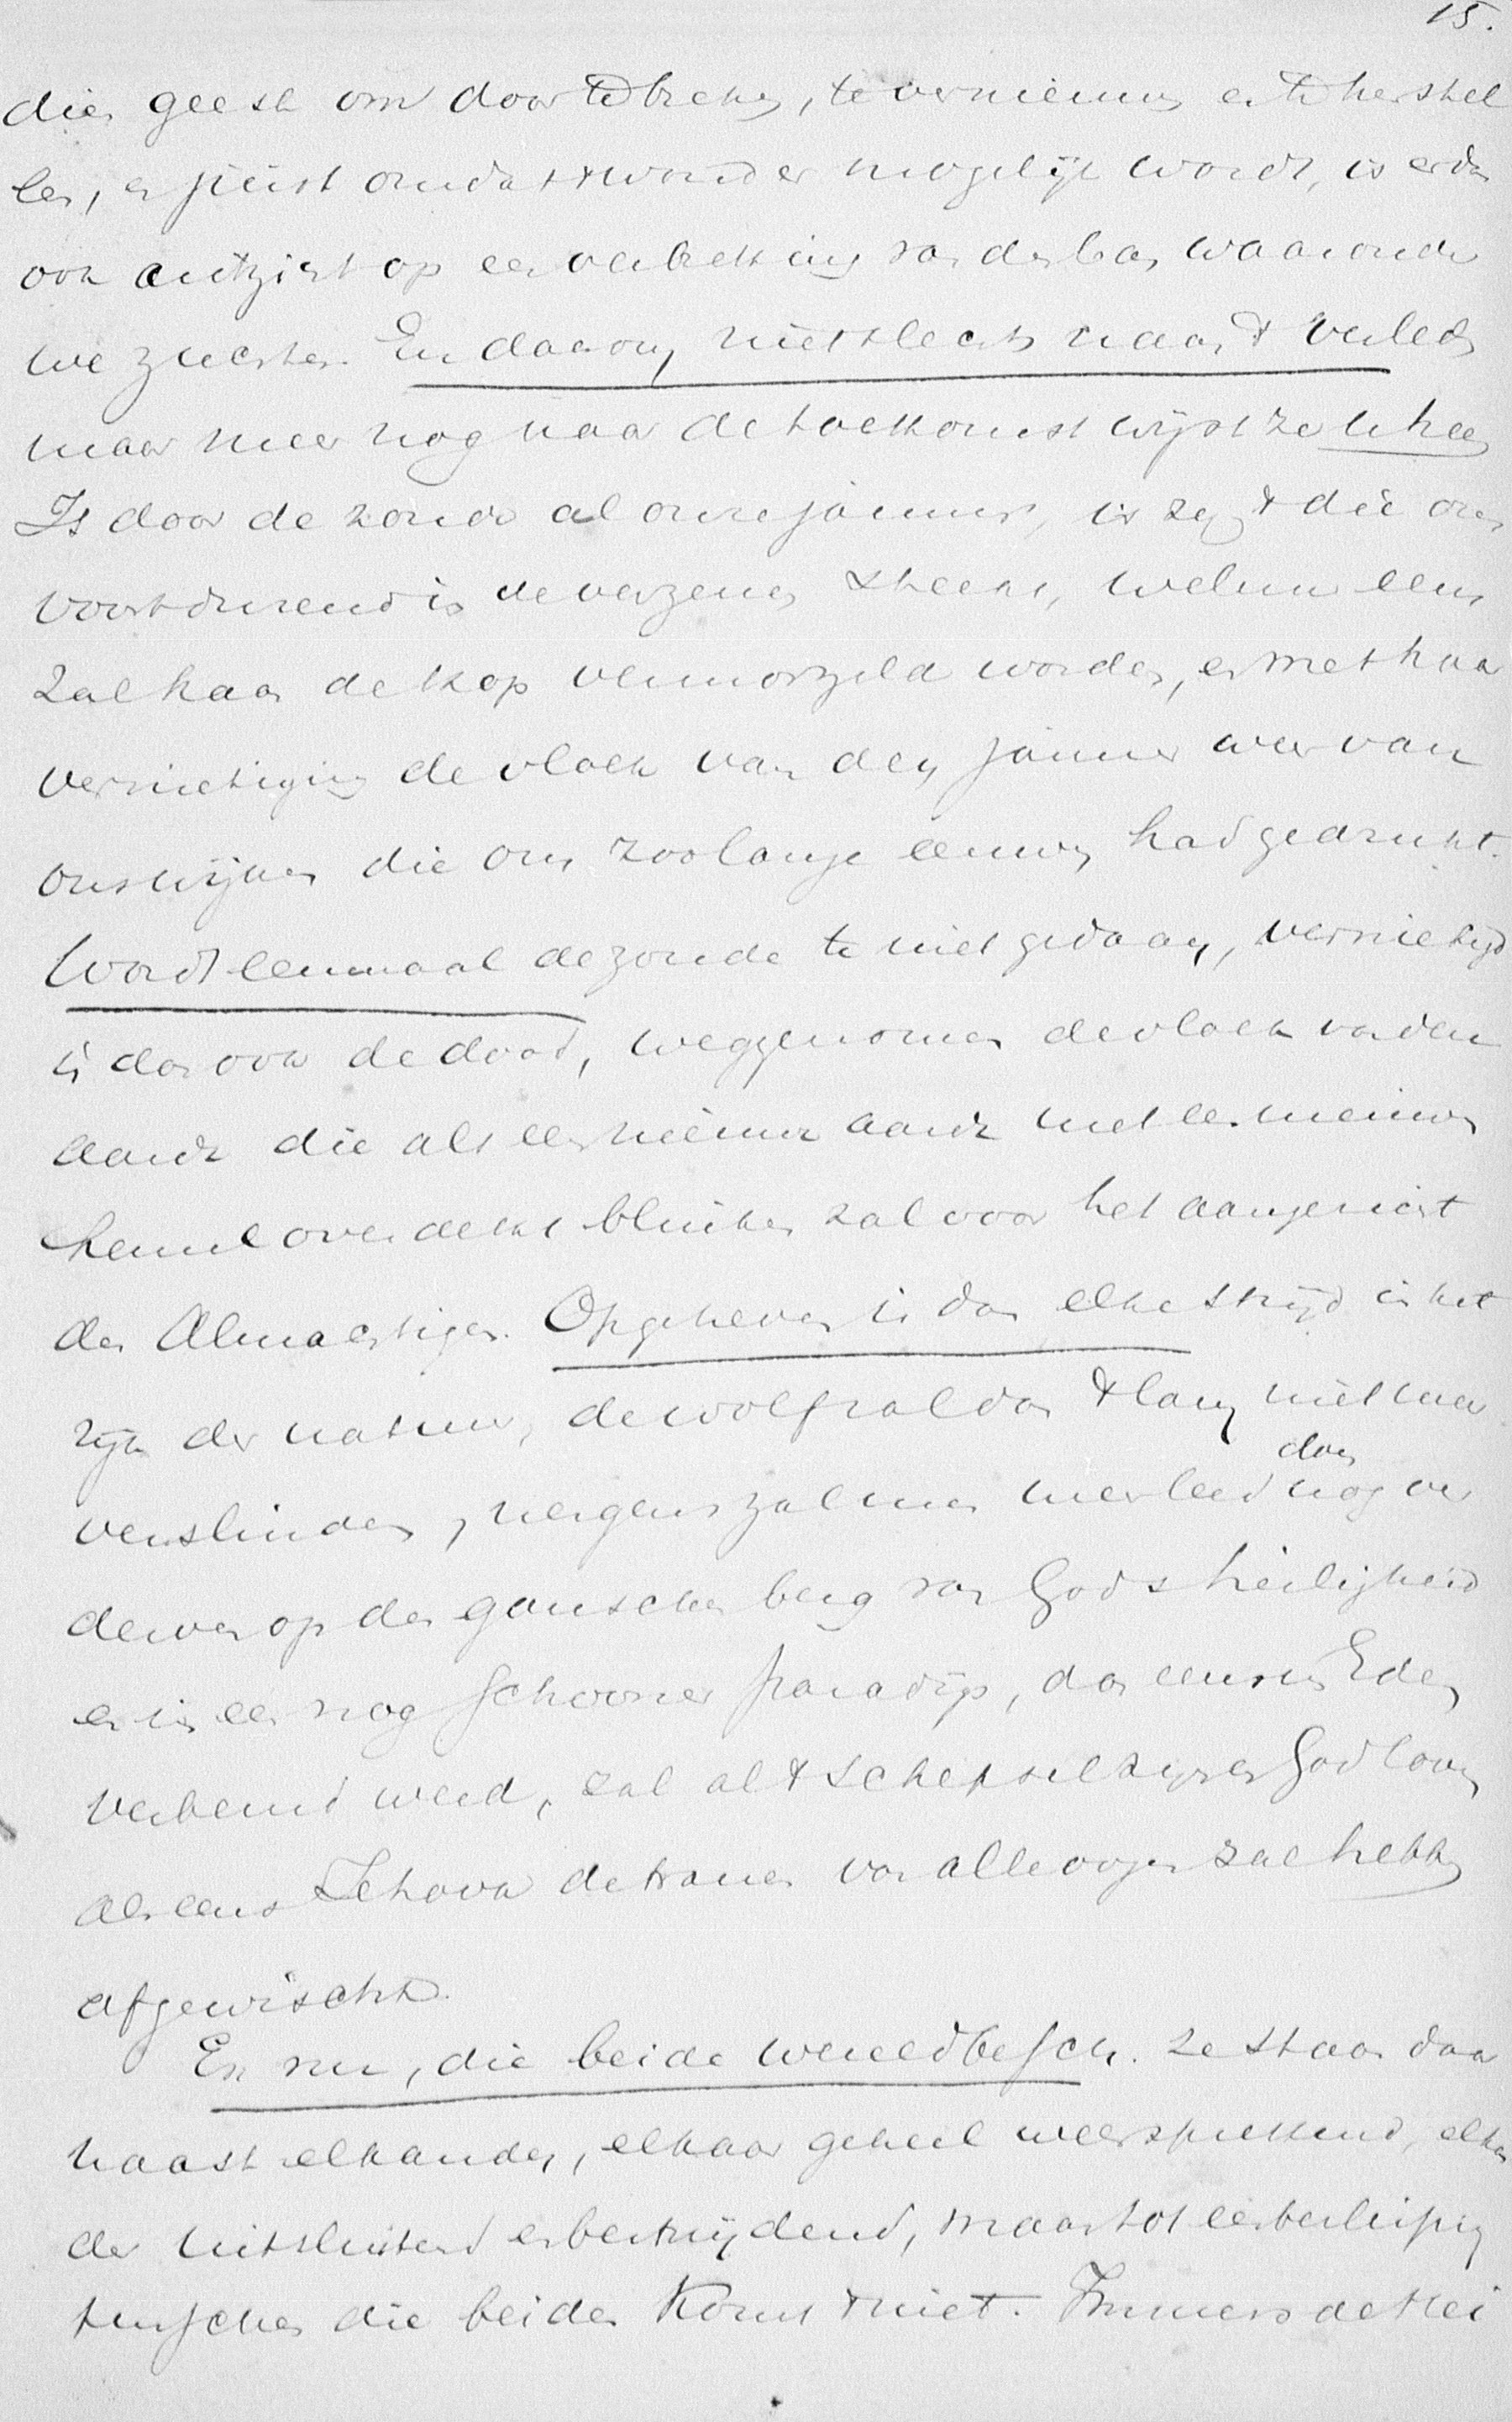 15.
dien geest om door te breken, te vernieuwen en te herstel
len, en juist omdat 't wonder mogelijk wordt, is er dan
ook uitzicht op een verbreking van den ban waaronder
we zuchten. En daarom niet slechts naar 't verleden
maar meer nog naar de toekomst wijst ze u heen
Is door de zonde al onze jammer, is zij 't die ons
voortdurend in de verzenen steekt, welnu eens
zal haar de kop vermorzeld worden, en met haar
vernietiging de vloek van den jammer weer van
ons wijken die ons zoo lange eeuwen had gedrukt.
Wordt eenmaal de zonde te niet gedaan, vernietigd
is dan ook de dood, weggenomen de vloek van deze
aarde die als een nieuwe aarde met een nieuwen
hemel overdekt blinken zal voor het aangezicht
des Almachtigen. Opgeheven is dan elke strijd in het
rijk der natuur, de wolf zal dan 't lam niet meer
verslinden, nergens zal men meer leed doen nog ver
derven op den ganschen berg van Gods heiligheid
en in een nog schooner paradijs, dan eens in Eden
verbeurd werd, zal al 't schepsel zijnen God loven
als eens Jehova de tranen van alle oogen zal hebben
afgewischt.
En nu, die beide wereldbesch. ze staan daar
naast elkander, elkaar geheel weersprekend, elkan
der uitsluitend en bestrijdend, maar tot een
tusschen die beiden komt 't niet. Immers de